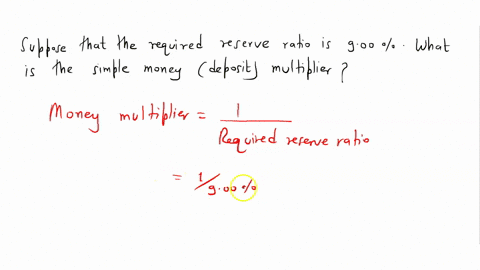 Suppose that the required reserve ratio is 9.00%. What
is the simple money (deposit) multiplier?
Money multiplier = 1 / Required reserve ratio
= 1/9.00%